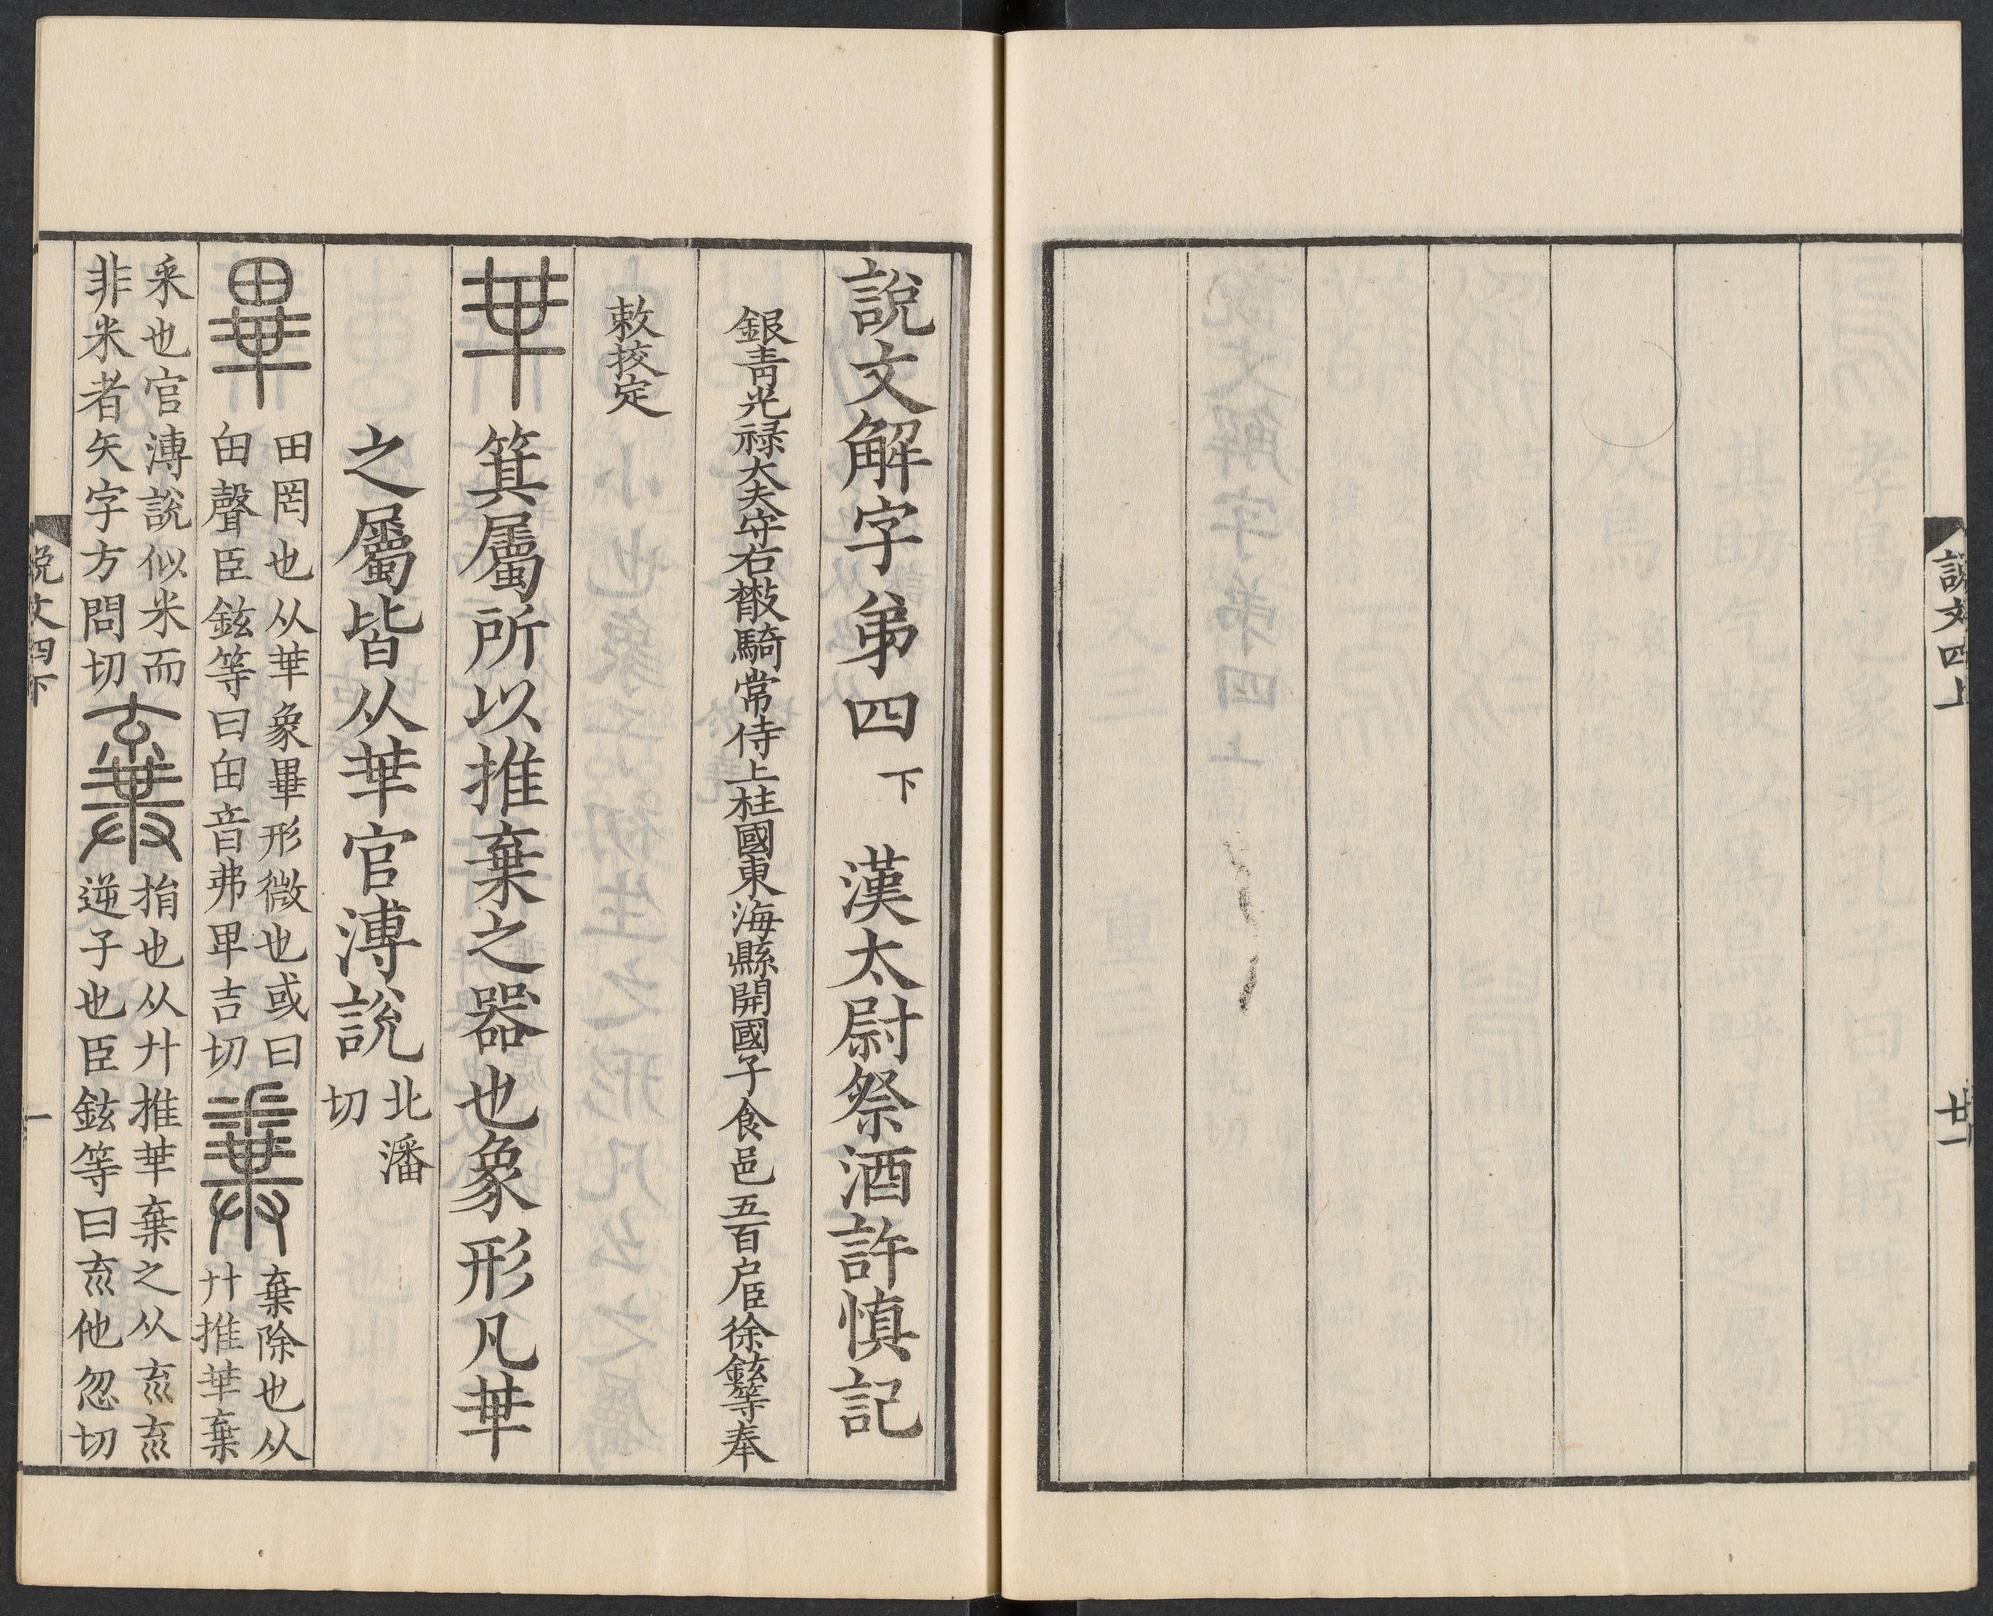 說文四上
廿一
說文解字弟四下 漢太尉祭酒許慎記
銀青光禄大夫守右散騎常侍上柱國東海縣開國子食邑五百户臣徐鉉等奉
敕挍定
𠦒 箕屬所以推棄之器也象形凡𠦒
之屬皆从𠦒官溥說北潘切
畢 田罔也从𠦒象畢形微也或曰
甶聲臣鉉等曰甶音弗畢吉切 糞 棄除也从
廾推𠦒棄
釆也官溥說似米而
非米者矢字方問切 棄 捐也从廾推𠦒棄之从𠫓𠫓
逆子也臣鉉等曰𠫓他忽切
說文四下
一